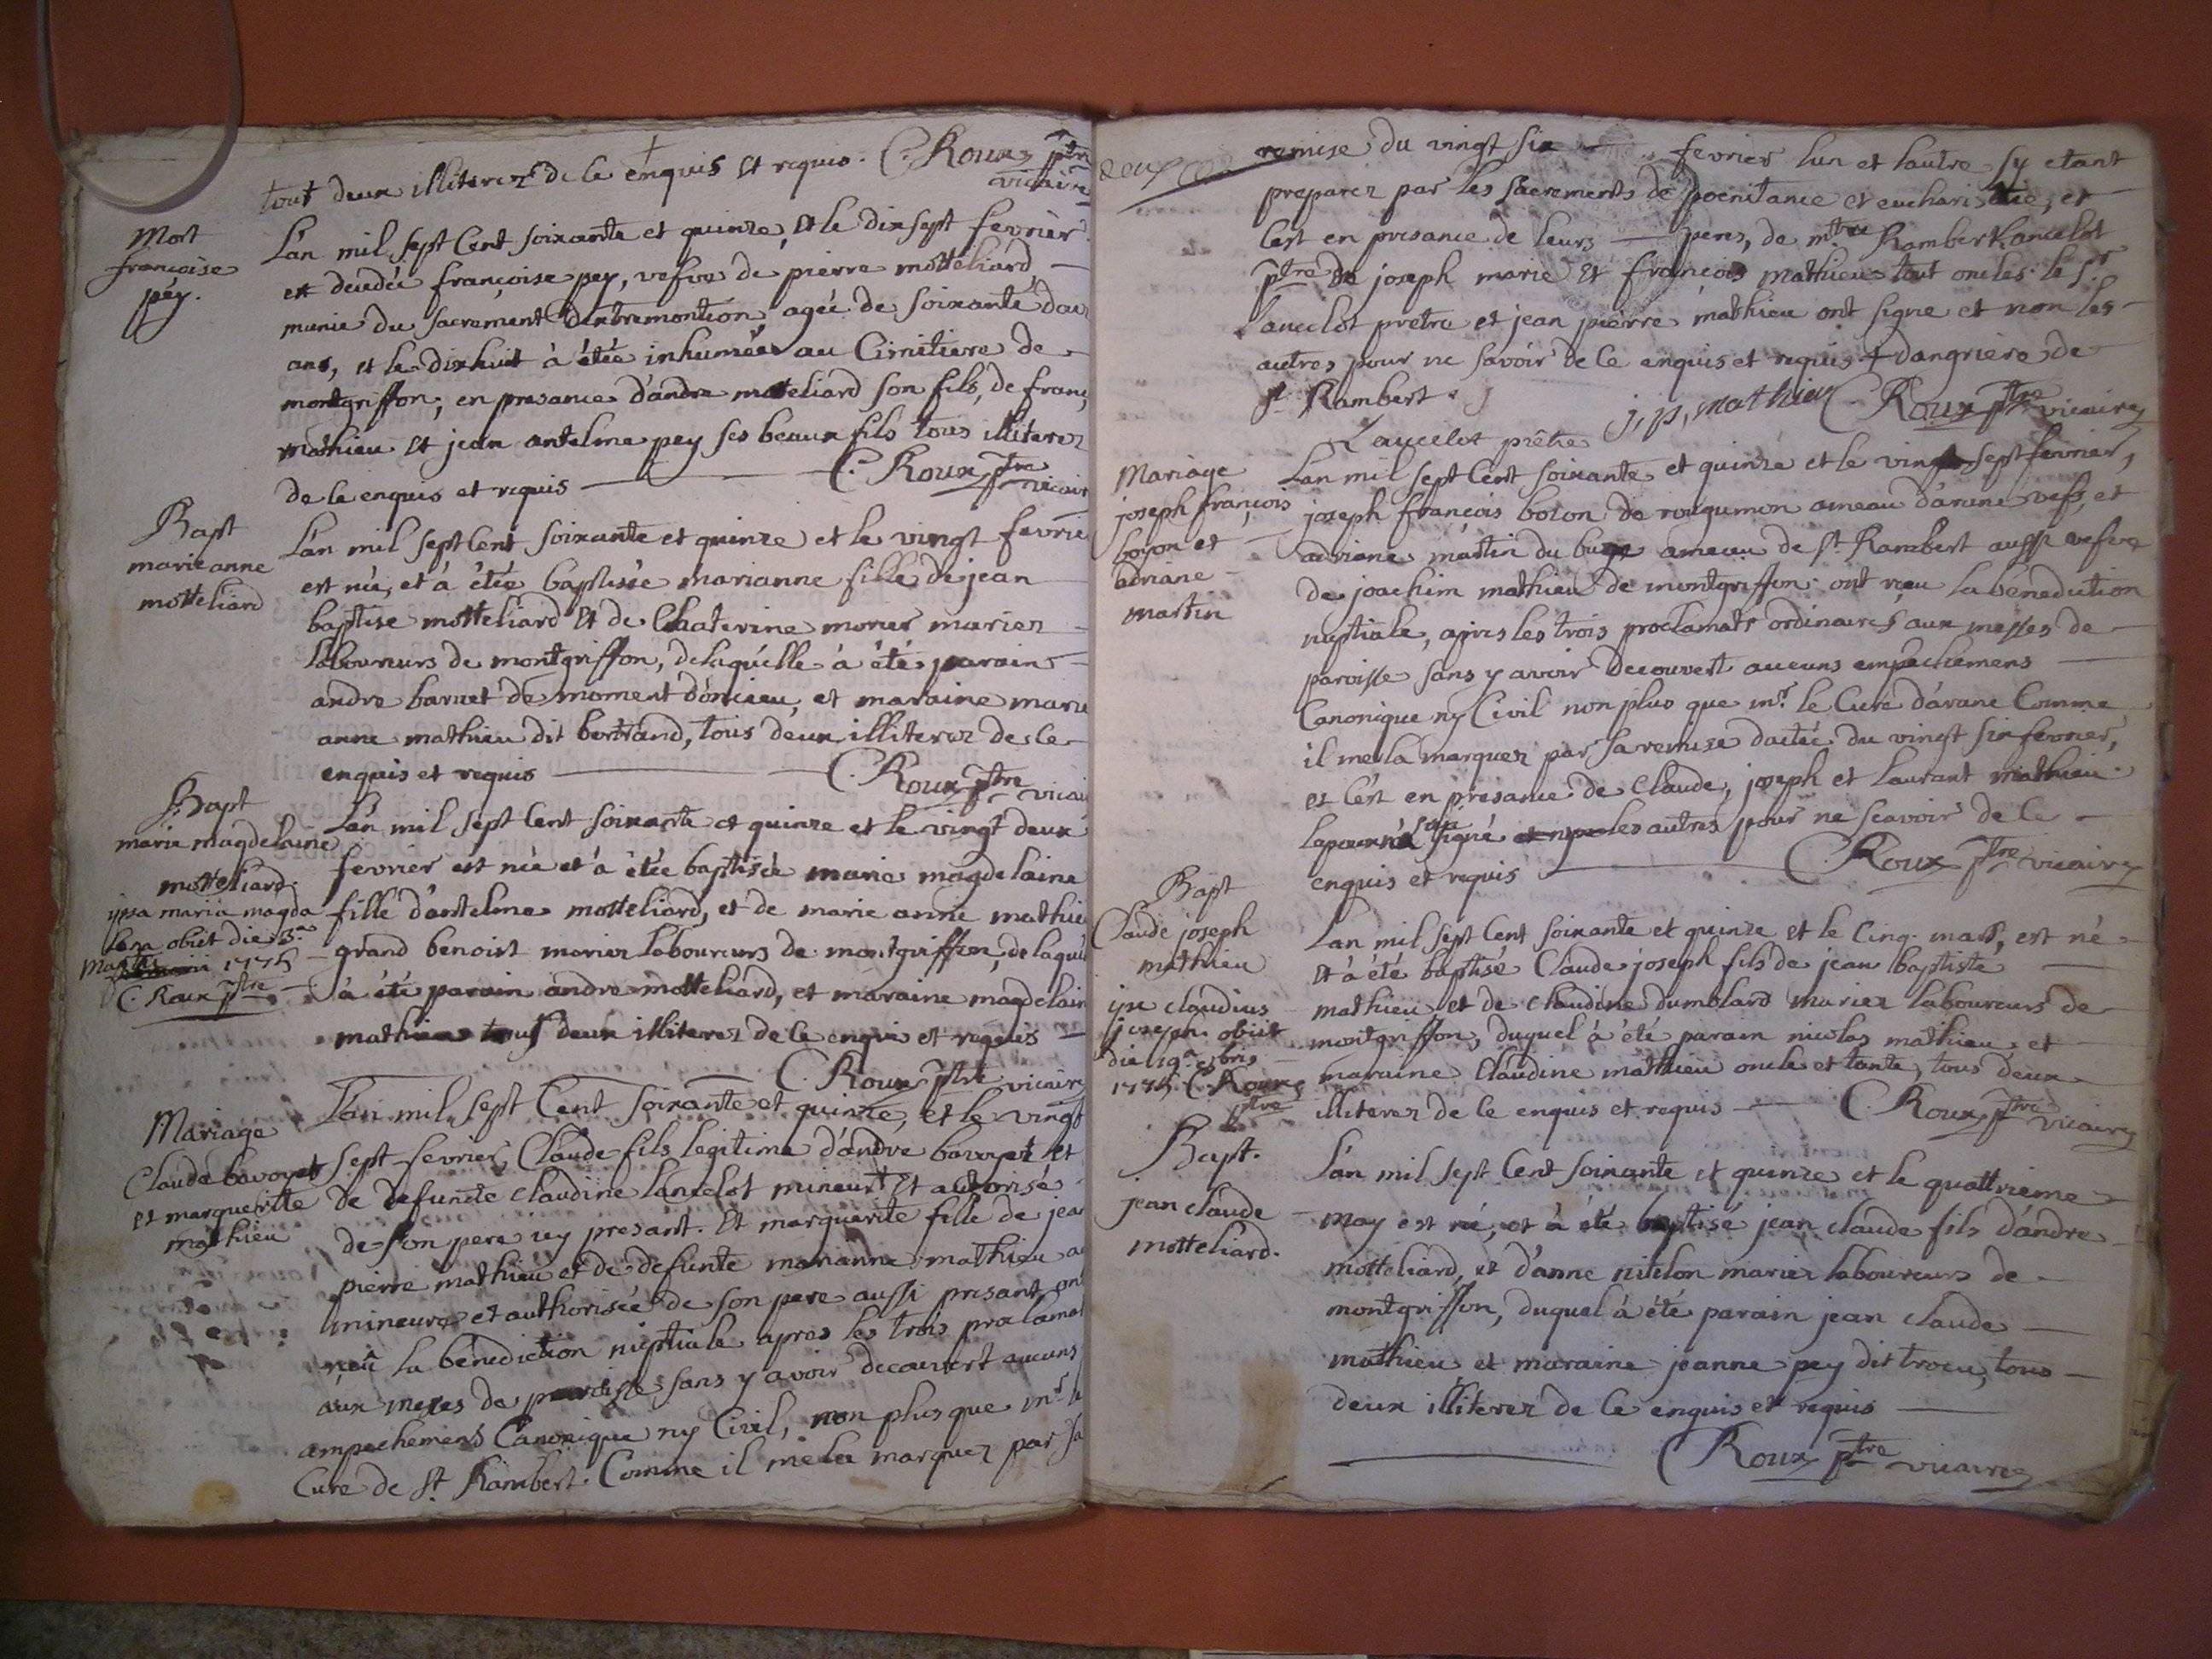 tout deux illiterez de ce enquis et requis. C. Roux ptre
vicaire
Mort
françoise
pey.
L'an mil sept Cent soixante et quinze, et le dix sept fevrier
est deudée françoise pey, vefve de pierre motteliard
munie du sacrement d'extremontion, agée de soixante
ans, et le dixhuit à étée inhumée au Cimitiere de
montgriffon; en presance d'andre moteliard son fils, de franç
mathieu et jean antelme pey ses beaux fils tous illiterez
de ce enquis et requis C. Roux ptre vicair
Bapt
marie anne
motteliard
L'an mil sept Cent soixante et quinze et le vingt fevrie
est née, et à étée baptisée marianne fille de jean
baptise motteliard et de Chaterine morier mariez
laboureurs de montgriffon, delaquelle à été parain
andre barnet de moment d'oncieu, et maraine marie
anne mathieu dit bertrand, tous deux illiterez de ce
enquis et requis C. Roux ptre vicai
Bapt
marie magdelaine
motteliard.
ipsa maria magda
lena obiit die 3a
Martis 1775
C. Roux ptre
L'an mil sept Cent soixante et quinze et le vingt deux
fevrier est née et à étée baptisée marie magdelaine
fille d'antelme motteliard, et de marie anne mathie
grand benoist mariez laboureurs de montgriffon, de laqu
à été parain andre motteliard, et maraine magdelain
mathieu tous deux illiterez de ce enquis et requis
C. Roux ptre vicaire
Mariage
Claude bavoyet
et marguerite
mathieu
L'an mil sept Cent soixante et quinze, et le vingt
sept fevrier, Claude fils legitime d'andre bavoyet et
de defuncte claudine lancelot mineur et authorisé
de son pere icy presant. et marguerite fille de jean
pierre mathieu et de defunte marianne mathieu a
mineure et authorisée de son pere aussi presant ont
reçu la bénediction nuptiale apres les trois proclamat
aux messes de paroisse sans y avoir decouvert aucuns
ampechemens Canonique ny Civil, non plus que mr le
Curé de St Rambert. Comme il me la marquez par sa
remise du vingt six fevrier lun et lautre sy etant
preparez par les sacrements de poenitance et eucharistie, et
cest en presance de leurs peres, de mtre Rambert Lancelot
ptre de joseph marie et françois mathieu tout oncles. le sr
Lancelot pretre et jean pierre mathieu ont signe et non les
autres pour ne savoir de ce enquis et requis + dangriere de
st Rambert.
Lancelot prêtre j, p, mathieu C. Roux ptre vicaire
Mariage
joseph françois
bozon et
adriane
martin
L'an mil sept Cent soixante et quinze et le vingt sept fevrier,
joseph françois bozon de rougumon ameau d'arane vefs, et
adriane martin du buge ameau de st Rambert aussi vefve
de joachim mathieu de montgriffon. ont reçu la bénediction
nuptiale, apres les trois proclamats ordinaires aux messes de
paroisse sans y avoir decouvert aucuns empechemens
Canonique ny Civil non plus que mr le Curé d'arane Comme
il me la marquez par sa remise dactée du vingt six fevrier,
et c'est en presance de claude, joseph et laurant mathieu.
signé les autres pour ne scavoir de ce
enquis et requis C. Roux ptre vicaire
Bapt
Claude joseph
mathieu
ipse claudius
joseph obiit
die 19a
1775 C. Roux
ptre
L'an mil sept Cent soixante et quinze et le Cinq mars, est né
et à été baptisé Claude joseph fils de jean baptiste
mathieu et de claudine dumolard mariez laboureurs de
montgriffon, duquel à été parain nicolas mathieu et
maraine Claudine mathieu oncle et tante, tous deux
illiterez de ce enquis et requis C. Roux ptre vicaire
Bapt.
jean claude
motteliard.
L'an mil sept Cent soixante et quinze et le quattrieme
may est né, et à été baptisé jean claude fils d'andre
motteliard, et d'anne nitelon mariez laboureurs de
montgriffon, duquel à été parain jean claude
mathieu et maraine jeanne pey dit trocu, tous
deux illiterez de ce enquis et requis
C. Roux ptre vicaire